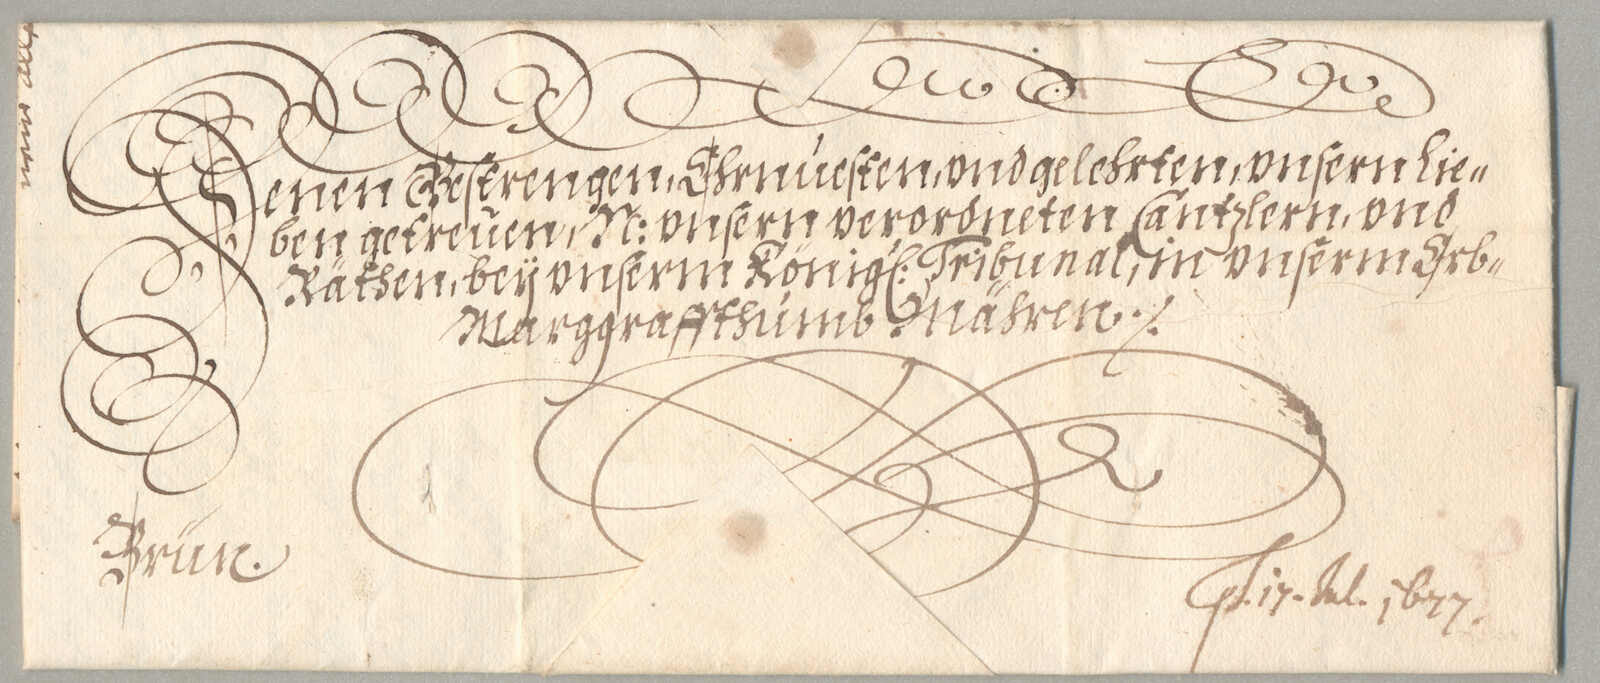 Denen Gestrengen, Ehrnuesten, vnd gelehrten, vnsern Lie=
ben getreuen, N: vnsern verordneten Cantzlern, vnd
Räthen, bey vnserm Königl: Tribunal, in vnserm Erb=
Marggraffthumb Mähren ./.
Brün.
pt. 17. Jul. 1677.